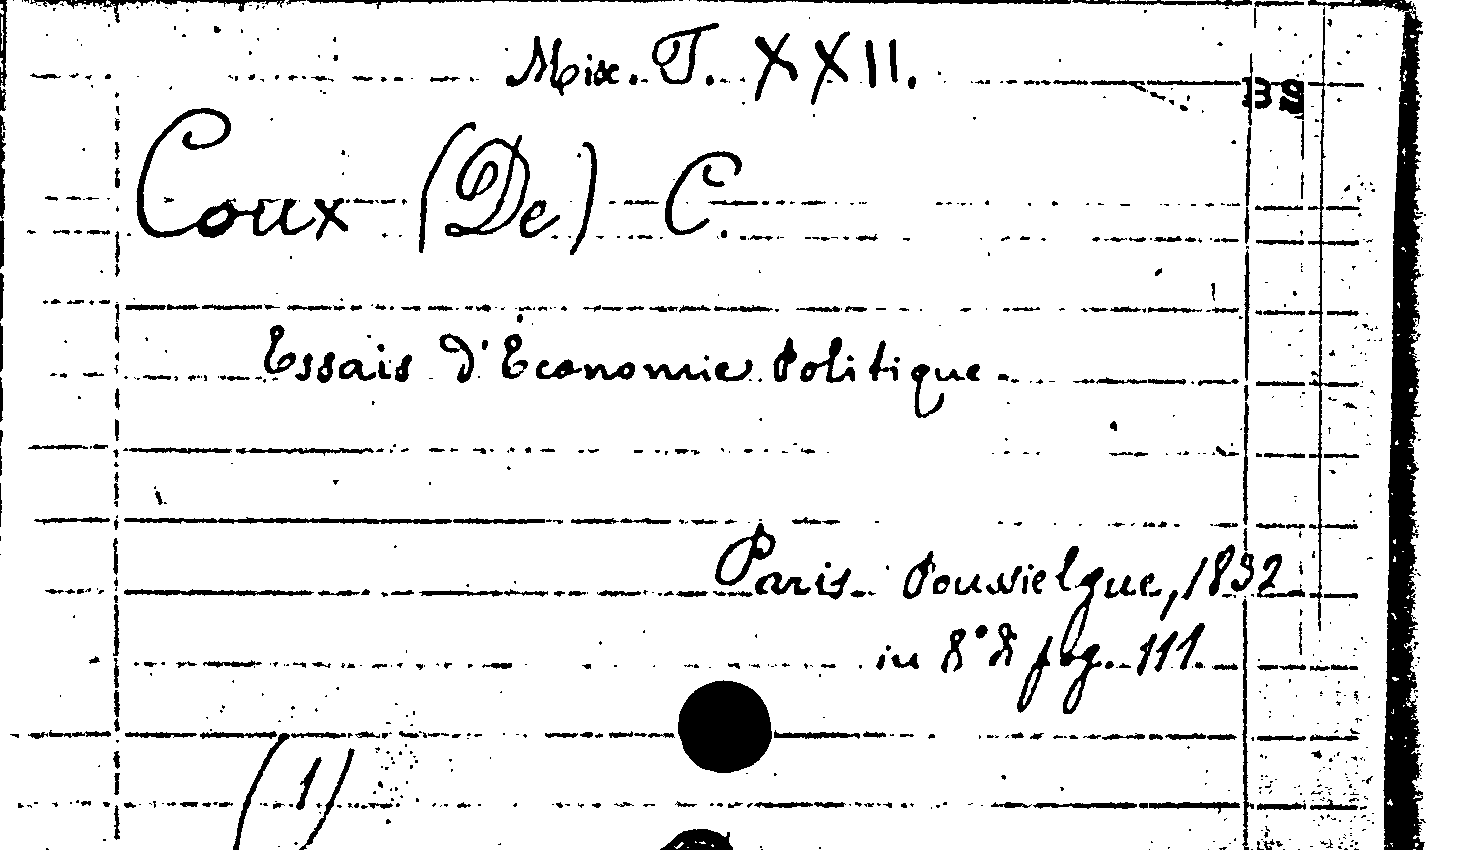 Mix. T. XXII.
Coux (De) C.
Essais d'Économie Politique.
Paris. Poussielgue, 1832
in 8° di pag. 111.
(1)